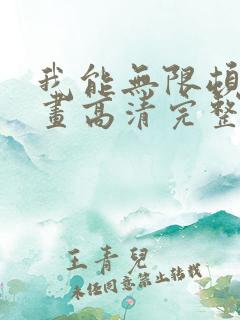 我能無限頓
畫高清完整
王青兒
未经同意禁止转载